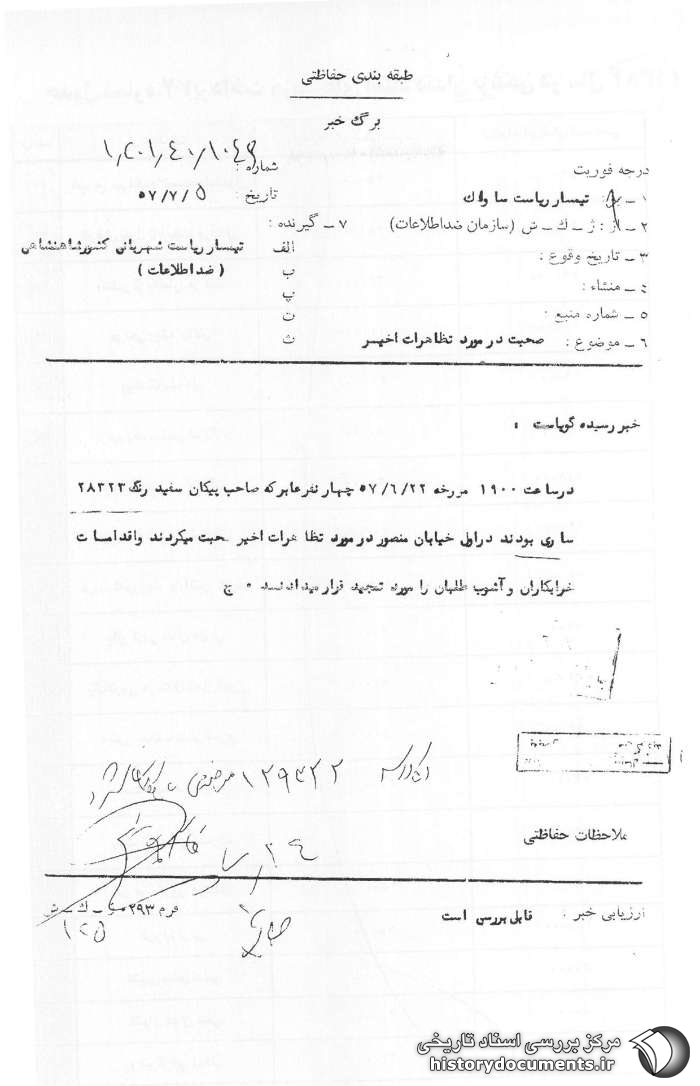 طبقه بندی حفاظتی
برگ خبر
شماره :
تاریخ : ۵۷/۷/۵
درجه فوریت
۱ ـ به : تیمسار ریاست ساواک
۲ ـ از : ژ ـ ک ـ ش (سازمان ضداطلاعات)
۳ ـ تاریخ وقوع :
٤ ـ منشاء :
۵ ـ شماره منبع :
۶ ـ موضوع : صحبت در مورد تظاهرات اخیر
۷ ـ گیرنده :
الف تیمسار ریاست شهربانی کشورشاهنشاهی
ب ( ضد اطلاعات )
پ
ت
ث
خبر رسیده گویاست :
در ساعت ۱۹۰۰ مورخه ۵۷/۶/۲۲ چهار نفر عابر که صاحب پیکان سفید رنگ ۲۸۳۲۳
ساری بودند در اول خیابان منصور در مورد تظاهرات اخیر صحبت میکردند و اقدامات
خرابکاران و آشوب طلبان را مورد تمجید قرار میدادند ۰ ج
ملاحظات حفاظتی
ارزیابی خبر : قابل بررسی است
مرکز بررسی اسناد تاریخی
historydocuments.ir